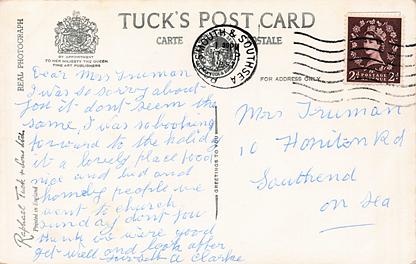 TUCK'S POST CARD
CARTE POSTALE
BY APPOINTMENT
TO HER MAJESTY THE QUEEN
FINE ART PUBLISHERS
REAL PHOTOGRAPH
PORTSMOUTH & SOUTHSEA
FOR ADDRESS ONLY
POSTAGE
2d 2d
Dear Mrs Truman
I was so sorry about
you it dont seem the
same, I was so looking
forward to the holiday
it a lovely place food
nice and bed and
homely people we
went to church
sunday dont you
think we were good
get well and look after
yourself A Clarke
Mrs Truman
10 Honiton Rd
Southend
on Sea
Raphael Tuck & Sons Ltd.
Printed in England
GREETINGS TO YOU